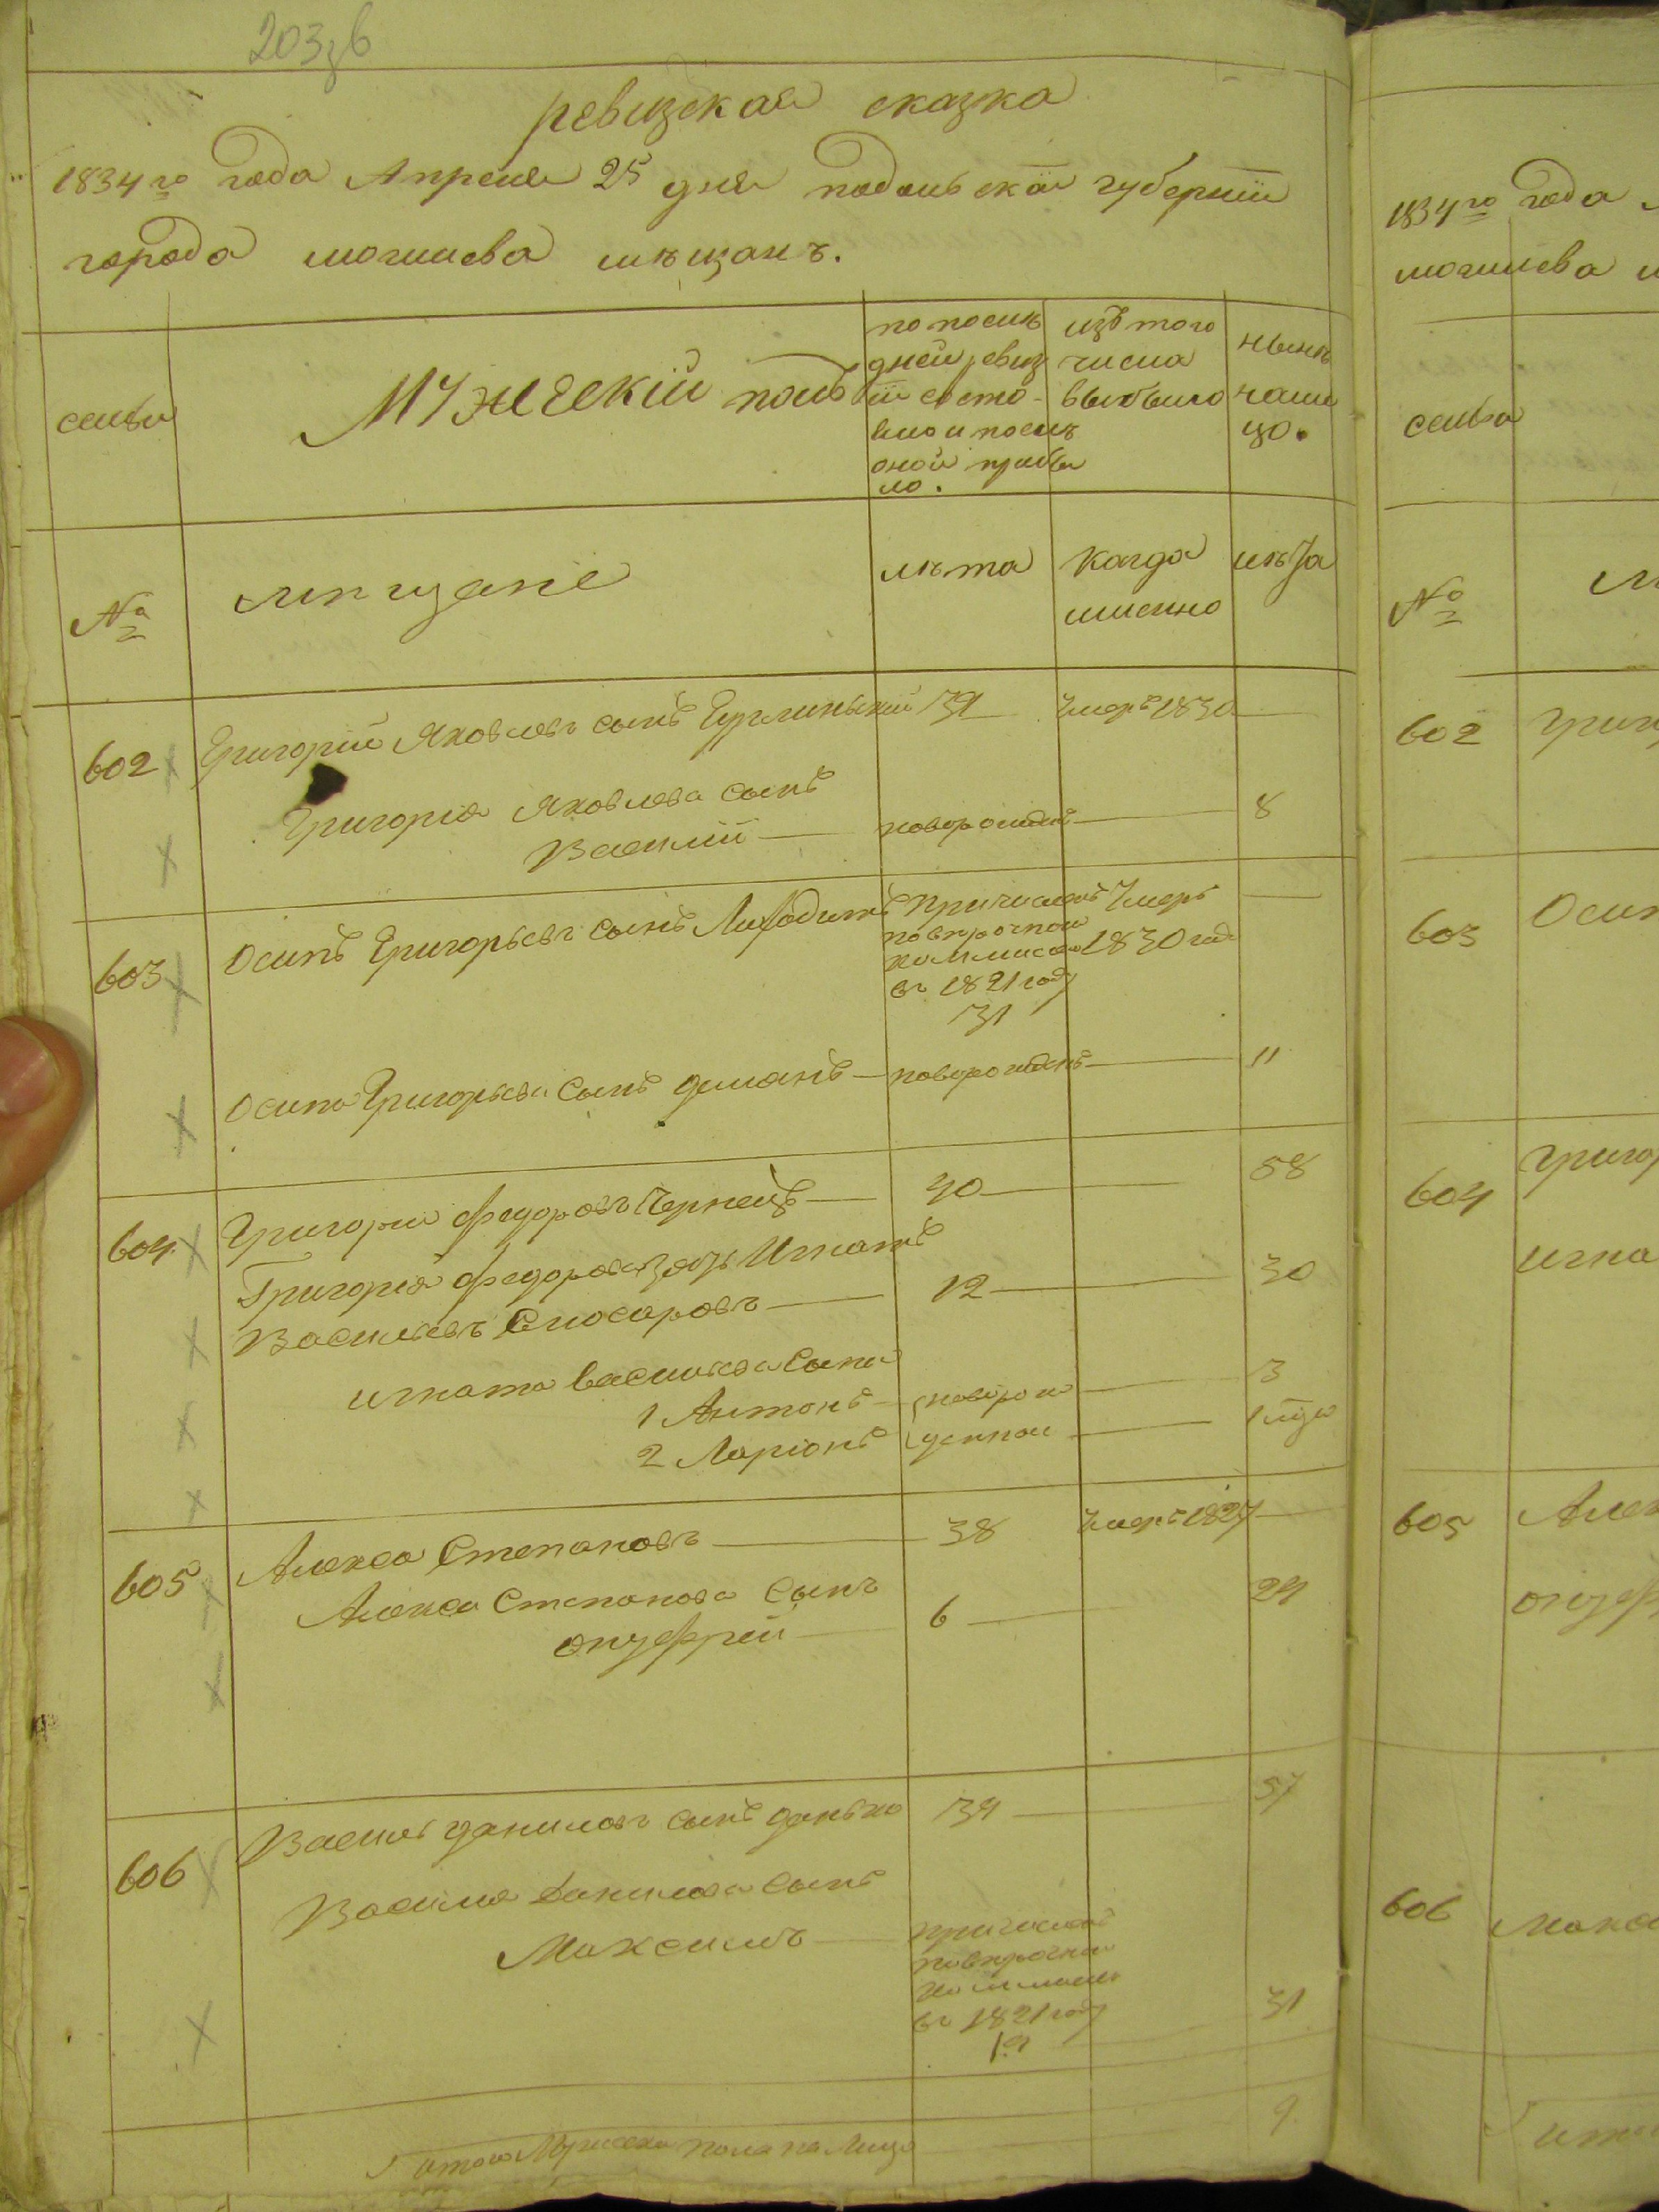 203зв
ревизская сказка
1834го года Апреля 25 дня подольской губернiи
города могилева мѣщанъ.
семьи
Мужескiй полъ
по послѣ
дней ревиз
iи состо-
яло и послѣ
оной прибы
ло.
изъ того
числа
выбыло
нынѣ
на ли
цо.
№
мѣщане
лѣта
когда
имянно
лѣта
602 Григорiй Яковлевъ сынъ 39 Умеръ 1830
Григорiя Яковлева сынъ
Василiй новорожденъ 8
603 Осипъ Григорьевъ сынъ причисленъ Умеръ
по вѣрочной
коммисiи 1830 года
въ 1821 году
31
Осипа Григорьева сынъ новорожденъ 11
604 Григорiй Федоровъ Чернецъ 40 58
Григорiя Федорова зять Игнатъ
Васильевъ Слюсаровъ 12 30
Игната Васильева сыны
1 Антонъ новорож 3
2 Ларiонъ денные 1
605 Алекса Степановъ 38 Умеръ 1827
Алексы Степанова сынъ
Онуфрей 6 24
606 Василь Даниловъ сынъ Данько 39 57
Василя Данилова сынъ
Максимъ причисленъ
по вѣрочной
коммисiи
въ 1821 году 31
19
Итого Мужеска пола на Лицо 9
1834го года
могилева
семьи
№
602 Григ
603 Осип
604 Григор
Игна
605 Алек
Онуф
606 Макси
Ито